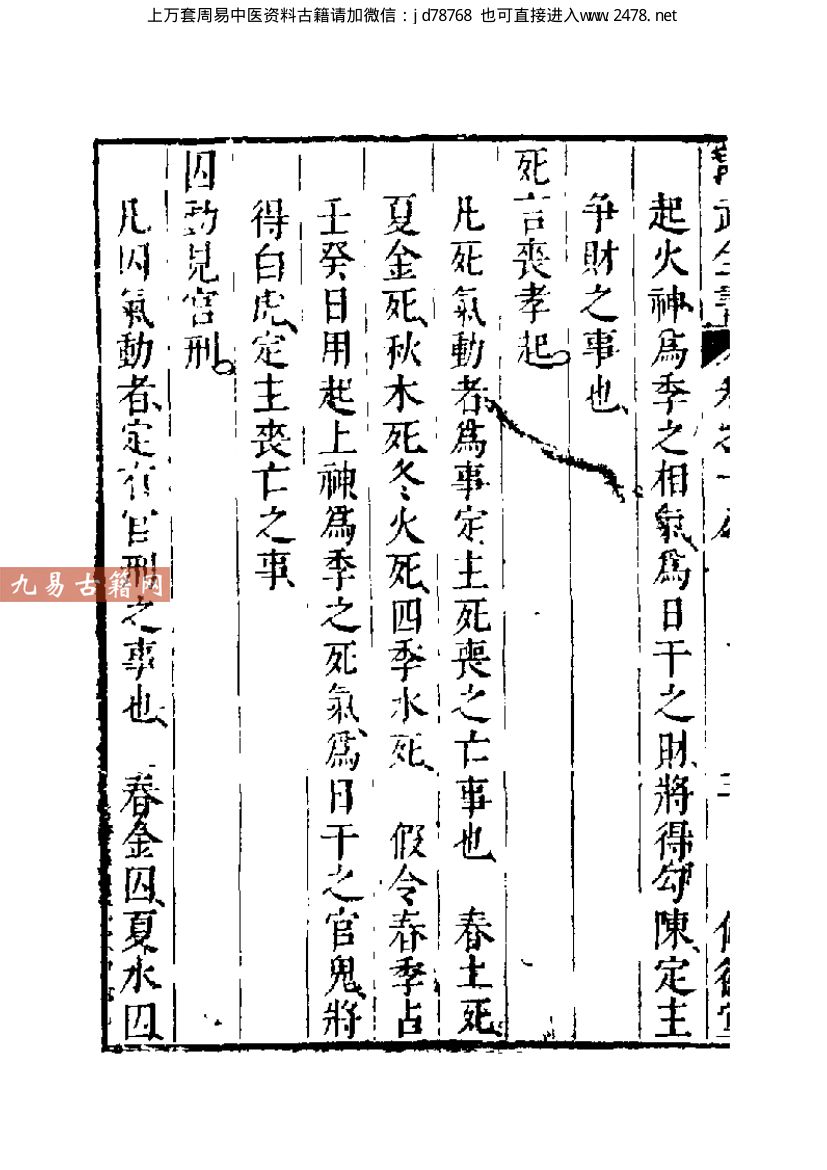 上万套周易中医资料古籍请加微信：jd78768 也可直接进入www.2478.net
起火神為季之相氣為日干之財將得勾陳定主
争財之事也
死言喪孝起
凡死氣動者為事定主死喪之亡事也 春土死
夏金死秋木死冬火死四季水死 假令春季占
壬癸日用起上神為季之死氣為日干之官鬼將
得白虎定主喪亡之事
囚動見官刑
凡囚氣動者定有官刑之事也 春金囚夏水囚
九易古籍网